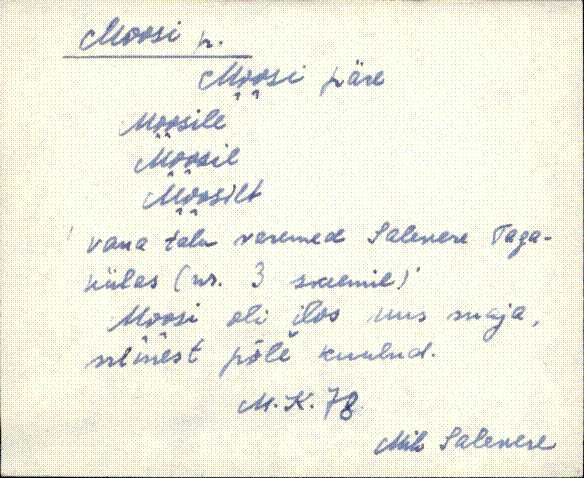 Moosi p.
Moosi päre
Moosile
Moosil
Moosilt
' vana talu varemed Salevere Taga-
külas (nr. 3 skeemil)'
Moosi oli ilos uus maja,
nimest põle kuulud.
M. K. 78
Mih Salevere